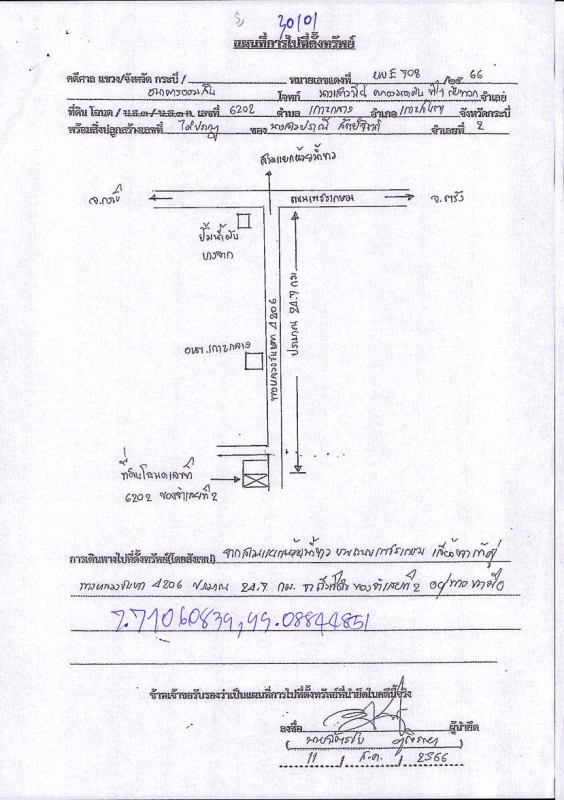 30/01
แผนที่การไปที่ตั้งทรัพย์
คดีศาล แขวง/จังหวัด กระบี่ / หมายเลขแดงที่ ผบE 708 /25 66
ธนาคารออมสิน โจทก์ นางสาวปราณี จำเลย
ที่ดิน โฉนด / น.ส.๓ / น.ส.๓ ก. เลขที่ 6202 ตำบล เกาะกลาง อำเภอ เกาะลันตา จังหวัดกระบี่
พร้อมสิ่งปลูกสร้างเลขที่ ไม่ปรากฏ ของ นางสาวปราณี จำเลยที่ 2
สามแยกห้วยน้ำขาว
จ.กระบี่ ถนนเพชรเกษม จ.ตรัง
ปั๊มน้ำมัน
บางจาก
ทางหลวงชนบท 4206
ประมาณ 24.7 กม
อบต.เกาะกลาง
ที่ดินโฉนดเลขที่
6202 ของจำเลยที่ 2
การเดินทางไปที่ตั้งทรัพย์(โดยสังเขป) จากสามแยกห้วยน้ำขาว บนถนนเพชรเกษม เลี้ยวขวาเข้าสู่
ทางหลวงชนบท 4206 ประมาณ 24.7 กม. ถึงที่ดินของจำเลยที่ 2 อยู่ทางขวามือ
7.71060839,99.08844851
ข้าพเจ้าขอรับรองว่าเป็นแผนที่การไปที่ตั้งทรัพย์ที่นำยึดในคดีนี้จริง
ลงชื่อ ผู้นำยึด
11 / ส.ค. / 2566